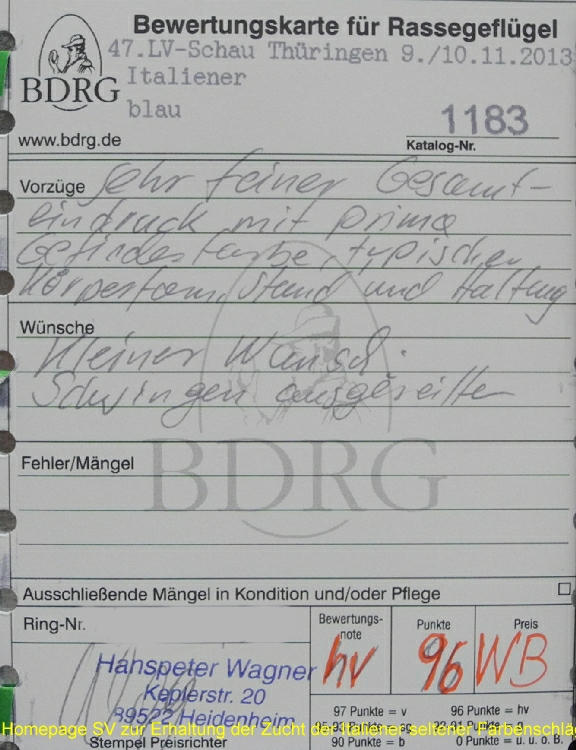 Bewertungskarte für Rassegeflügel
47.LV-Schau Thüringen 9./10.11.2013
Italiener
BDRG
blau
1183
www.bdrg.de
Katalog-Nr.
Vorzüge Sehr feiner Gesamt-
eindruck mit prima
Gefiederfarbe, typischer
Körperform, Stand und Haltung
Wünsche
Kleiner Wunsch:
Schwingen ausgereifter
BDRG
Fehler/Mängel
Ausschließende Mängel in Kondition und/oder Pflege
Ring-Nr.
Bewertungs-
note
Punkte
Preis
hv
96
WB
Hanspeter Wagner
Keplerstr. 20
89522 Heidenheim
97 Punkte = v
96 Punkte = hv
Homepage SV zur Erhaltung der Zucht der Italiener seltener Farbenschlä
Stempel Preisrichter
90 Punkte = b
0 Punkte = u. u. o. B.